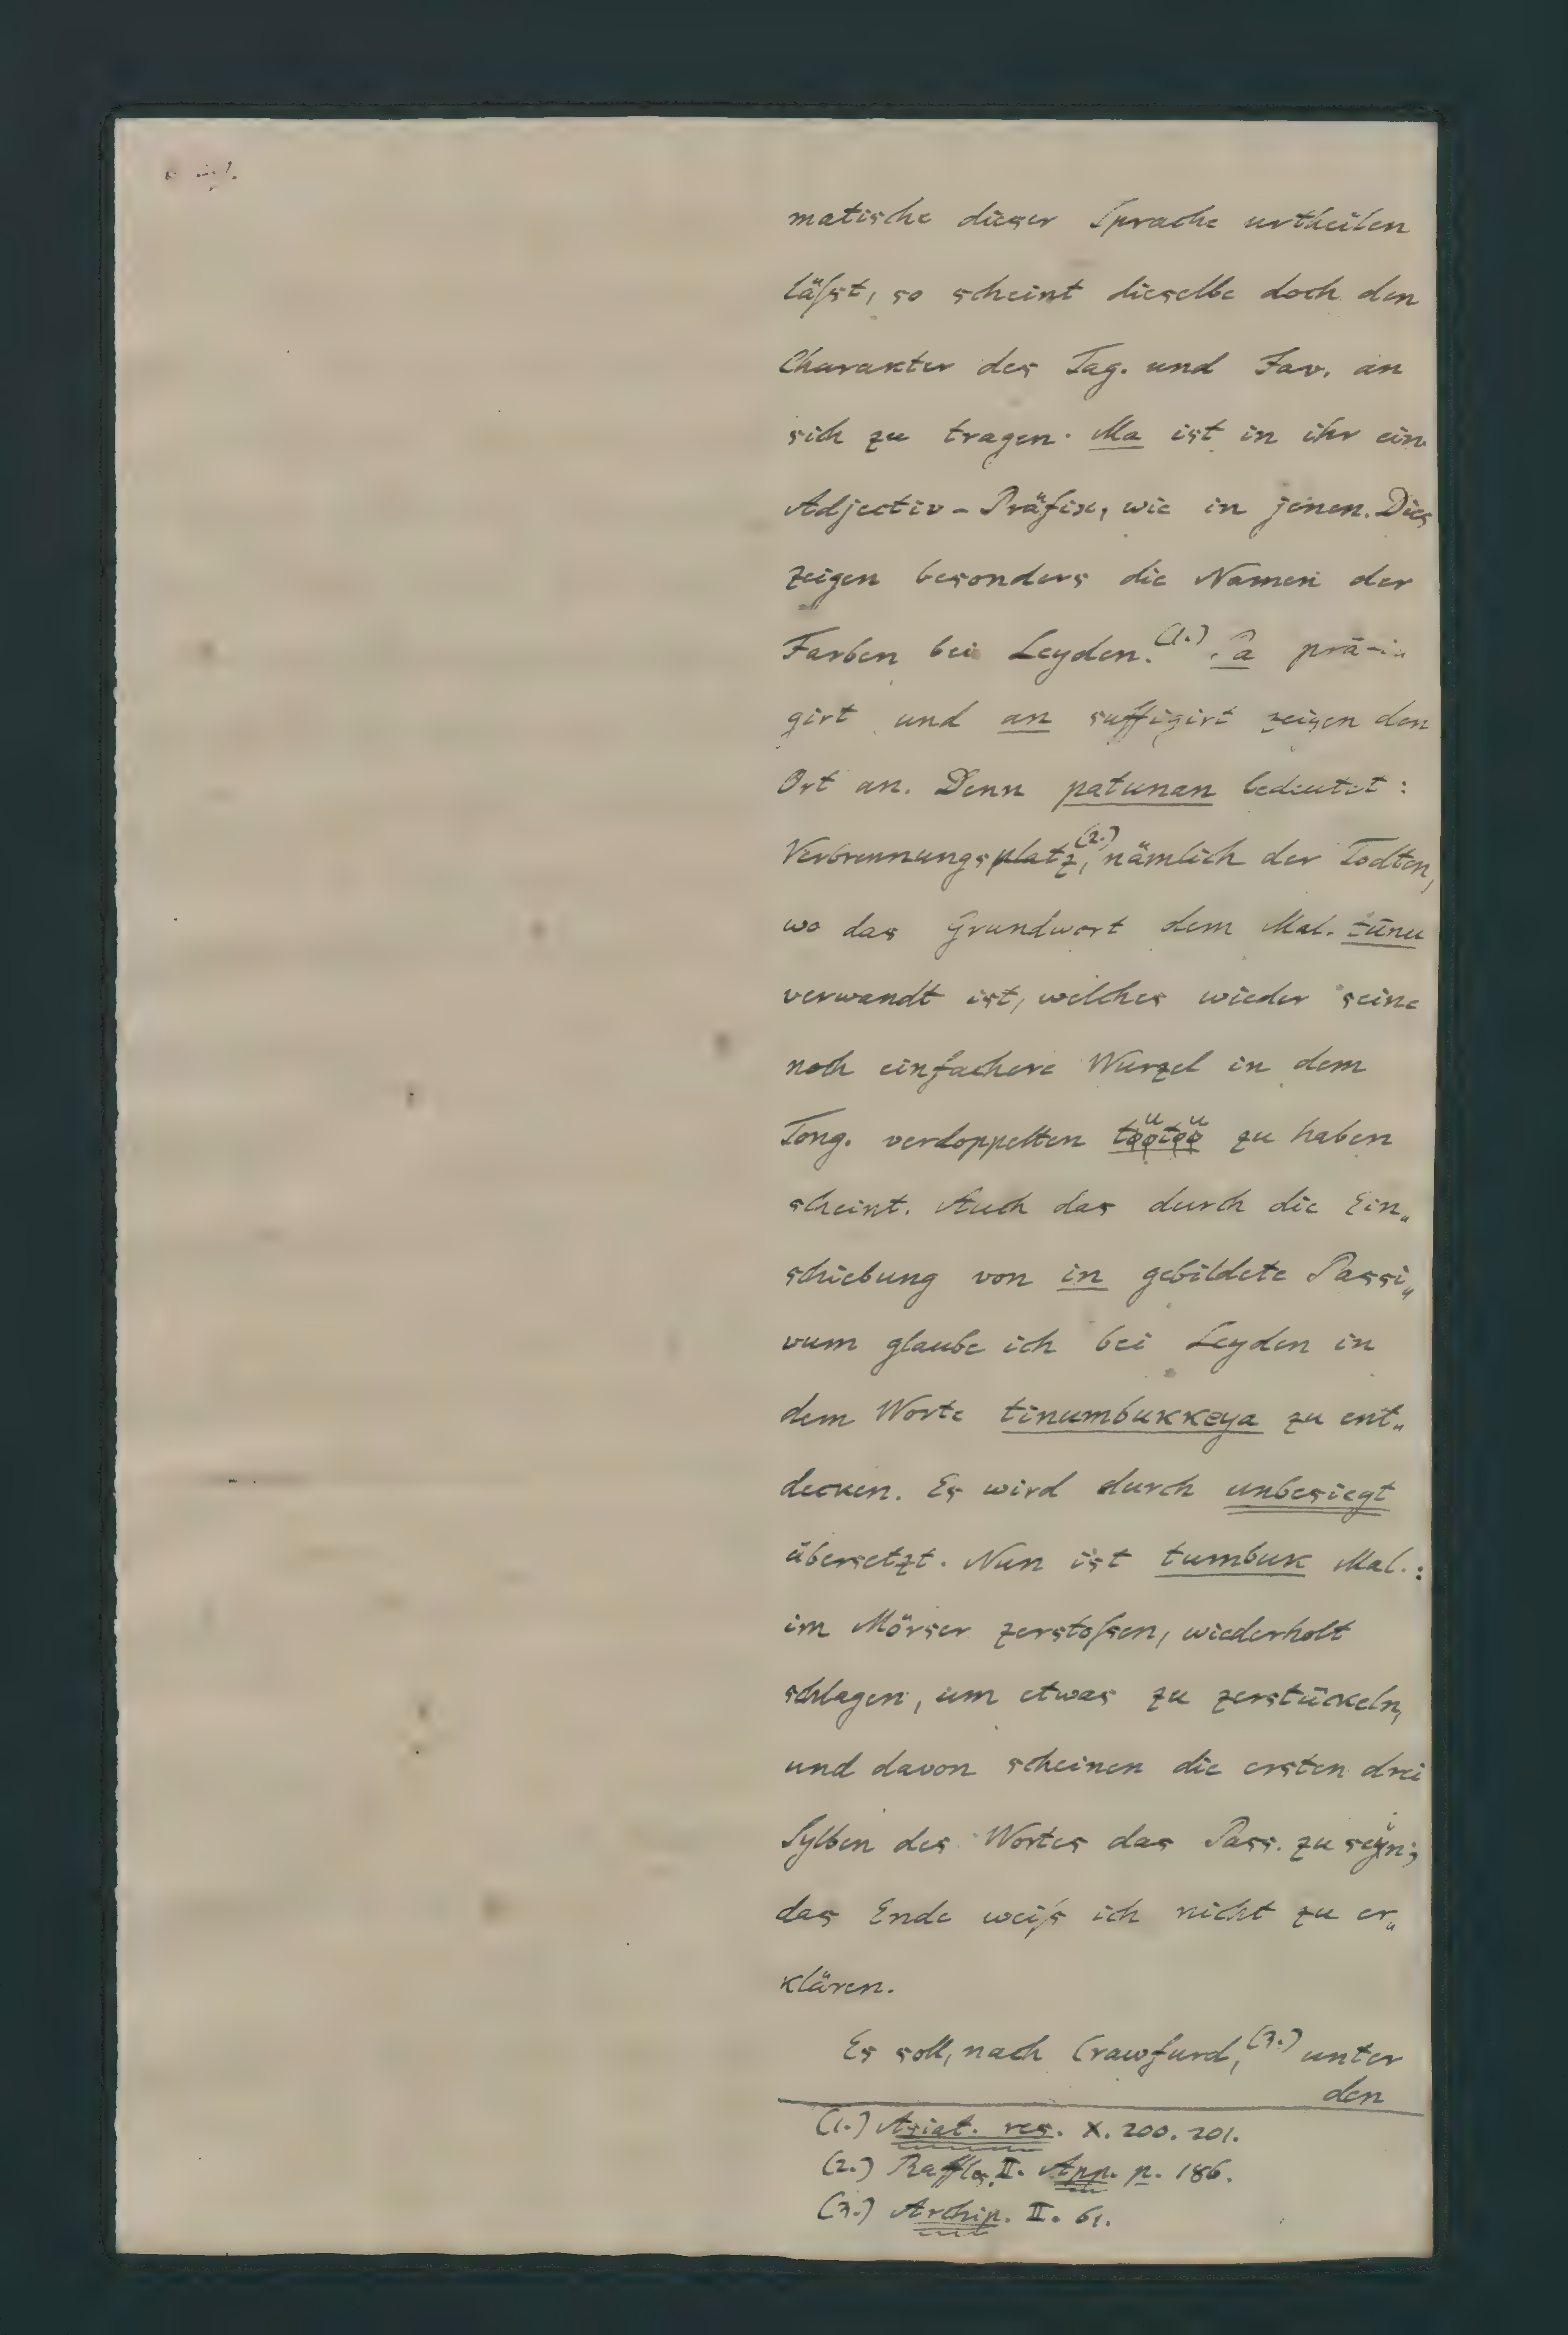 matische dieser Sprache urtheilen
läſst, so scheint dieselbe doch den
Charakter des Tag. und Jav. an
sich zu tragen. Ma ist in ihr ein
Adjectiv-Präfix, wie in jenen. Dies
zeigen besonders die Namen der
Farben bei Leyden.(1.) Pa prä-
girt und an suffigirt zeigen den
Ort an. Denn patunan bedeutet:
Verbrennungsplatz,(2.) nämlich der Todten,
wo das Grundwort dem Mal. tūnu
verwandt ist, welches wieder seine
noch einfachere Wurzel in dem
Tong. verdoppelten tutu zu haben
scheint. Auch das durch die Ein„
schiebung von in gebildete Passi„
vum glaube ich bei Leyden in
dem Worte tinumbukkeya zu ent„
decken. Es wird durch unbesiegt
übersetzt. Nun ist tumbuk Mal.:
im Mörser zerstoſsen, wiederholt
schlagen, um etwas zu zerstückeln,
und davon scheinen die ersten drei
Sylben des Wortes das Pass. zu sein;
das Ende weiſs ich nicht zu er„
klären.
Es soll, nach Crawfurd,(3.) unter
den
(1.) Asiat. res. X. 200. 201.
(2.) Raffles, II. App. p. 186.
(3.) Archip. II. 61.